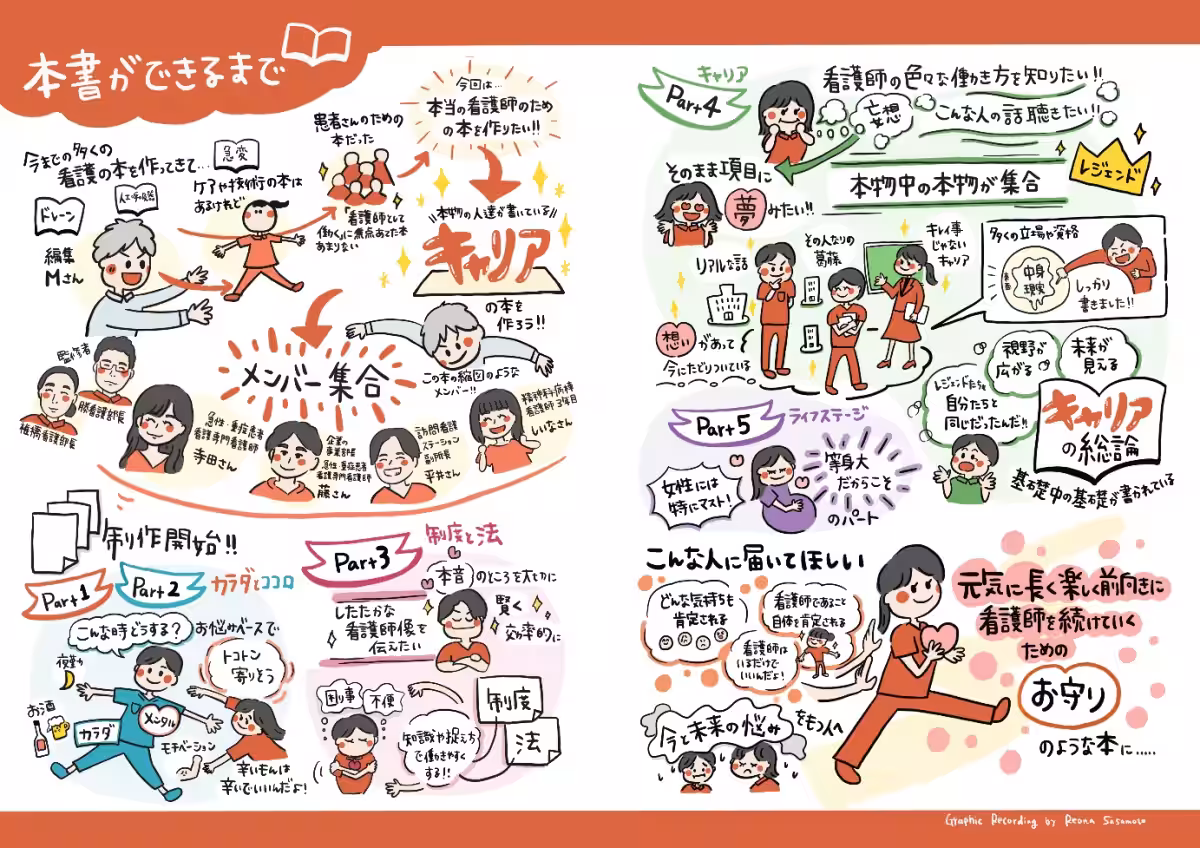 本書ができるまで
今までの多くの
看護の本を作ってきて…
ドレーン
人工呼吸器
急変
ケアや技術の本は
あるけれど
編集
Mさん
患者さんのための
本だった
「看護師として
働く」に焦点あてた本
あまりない
今回は…
本当の看護師のため
の本を作りたい!!
本物の人達が書いている
キャリア
の本を
作ろう!!
メンバー集合
この本の縮図のような
メンバー!!
監修者
勝看護部長
急性・重症患者
看護専門看護師
寺田さん
企業の
事業部長
急性・重症患者
看護専門看護師
藤さん
訪問看護
ステーション
副所長
平井さん
精神科病棟
看護師3年目
しいなさん
制作開始!!
Part1
Part2
カラダとココロ
こんな時どうする?
お悩みベースで
夜勤
お酒
カラダ
メンタル
モチベーション
トコトン
寄りそう
辛いもんは
辛いでいいんだよ!
Part3
制度と法
本音のところを大切に
したたかな
看護師像を
伝えたい
賢く
効率的に
困り事
不便
知識や捉え方
で働きやすく
する!!
制度
法
Part4
キャリア
看護師の色々な働き方を知りたい!!
妄想
こんな人の話聴きたい!!
そのまま項目に
夢みたい!!
本物中の本物が集合
レジェンド
リアルな話
その人なりの
葛藤
キレイ事
じゃない
キャリア
想いがあって
今にたどりついている
多くの立場や資格
中身
現実
しっかり
書きました!!
視野が
広がる
未来が
見える
レジェンドたちも
自分たちと
同じだったんだ!!
キャリア
の総論
基礎中の基礎が書かれている
Part5
ライフステージ
女性には
特にマスト!
等身大
だからこそ
のパート
こんな人に届いてほしい
どんな気持ちも
肯定される
看護師であること
自体を肯定される
看護師は
いるだけで
いいんだよ!
今と未来の悩み
をもつ人へ
元気に長く楽しく前向きに
看護師を続けていく
ための
お守り
のような本に.....
Graphic Recording by Reona Sasamoto